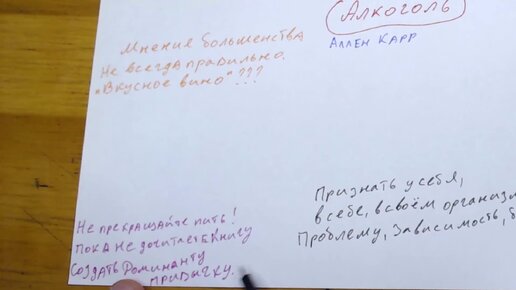 Алкоголь
Аллен Карр
Мнение большенства
не всегда правильно.
"Вкусное вино"???
Признать у себя,
в себе, в своём организм
Проблему, зависимость, б
Не прекращайте пить!
пока не дочитаете книгу
создать Доминанту
привычку.